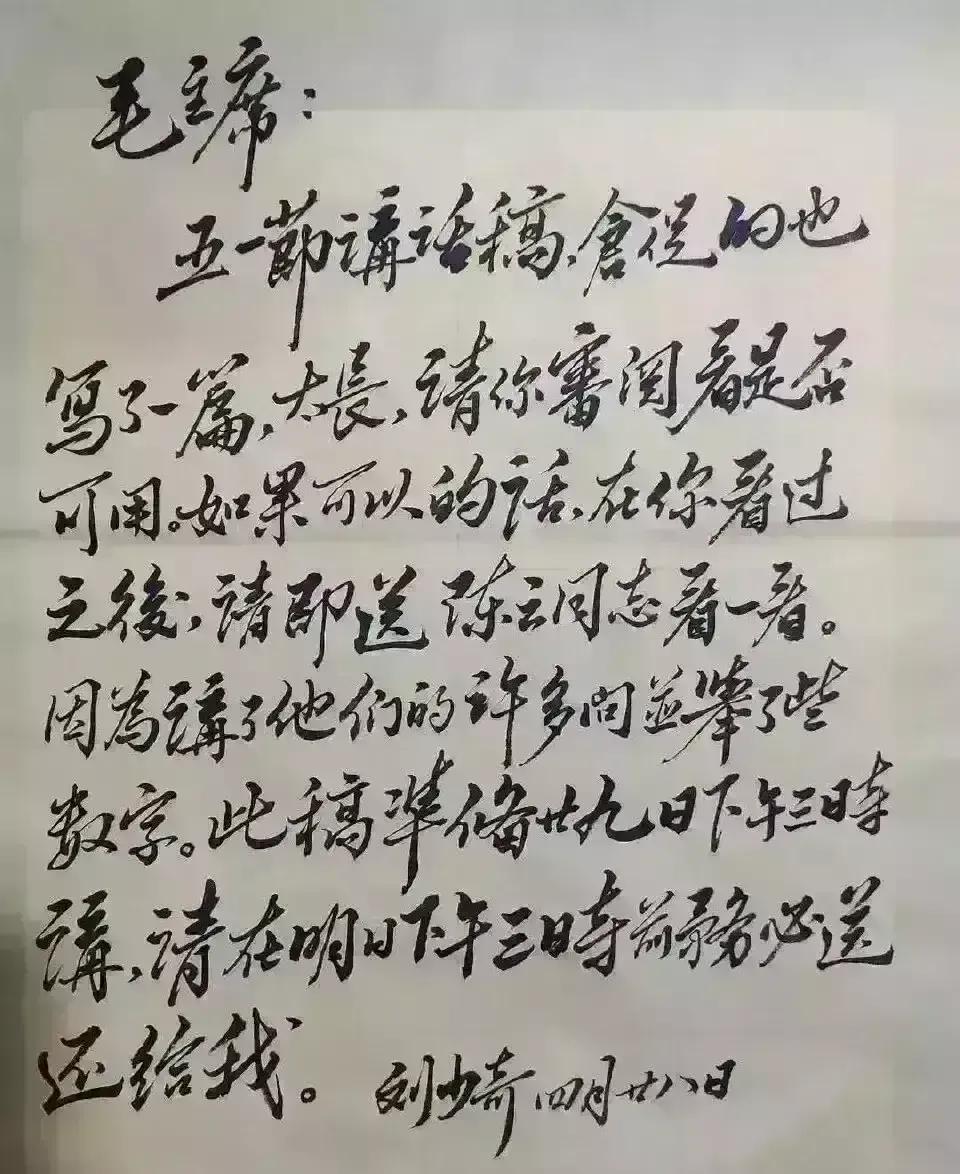 毛主席：
五一節講話稿，倉促的也
寫了一篇，太長，請你審閱看是否
可用。如果可以的話，在你看过
之後，請即送陈云同志看一看。
因為講了他们的许多問並舉了些
数字。此稿準备廿九日下午三时
講，请在明日下午三时前務必送
还给我。 刘少奇 四月廿八日